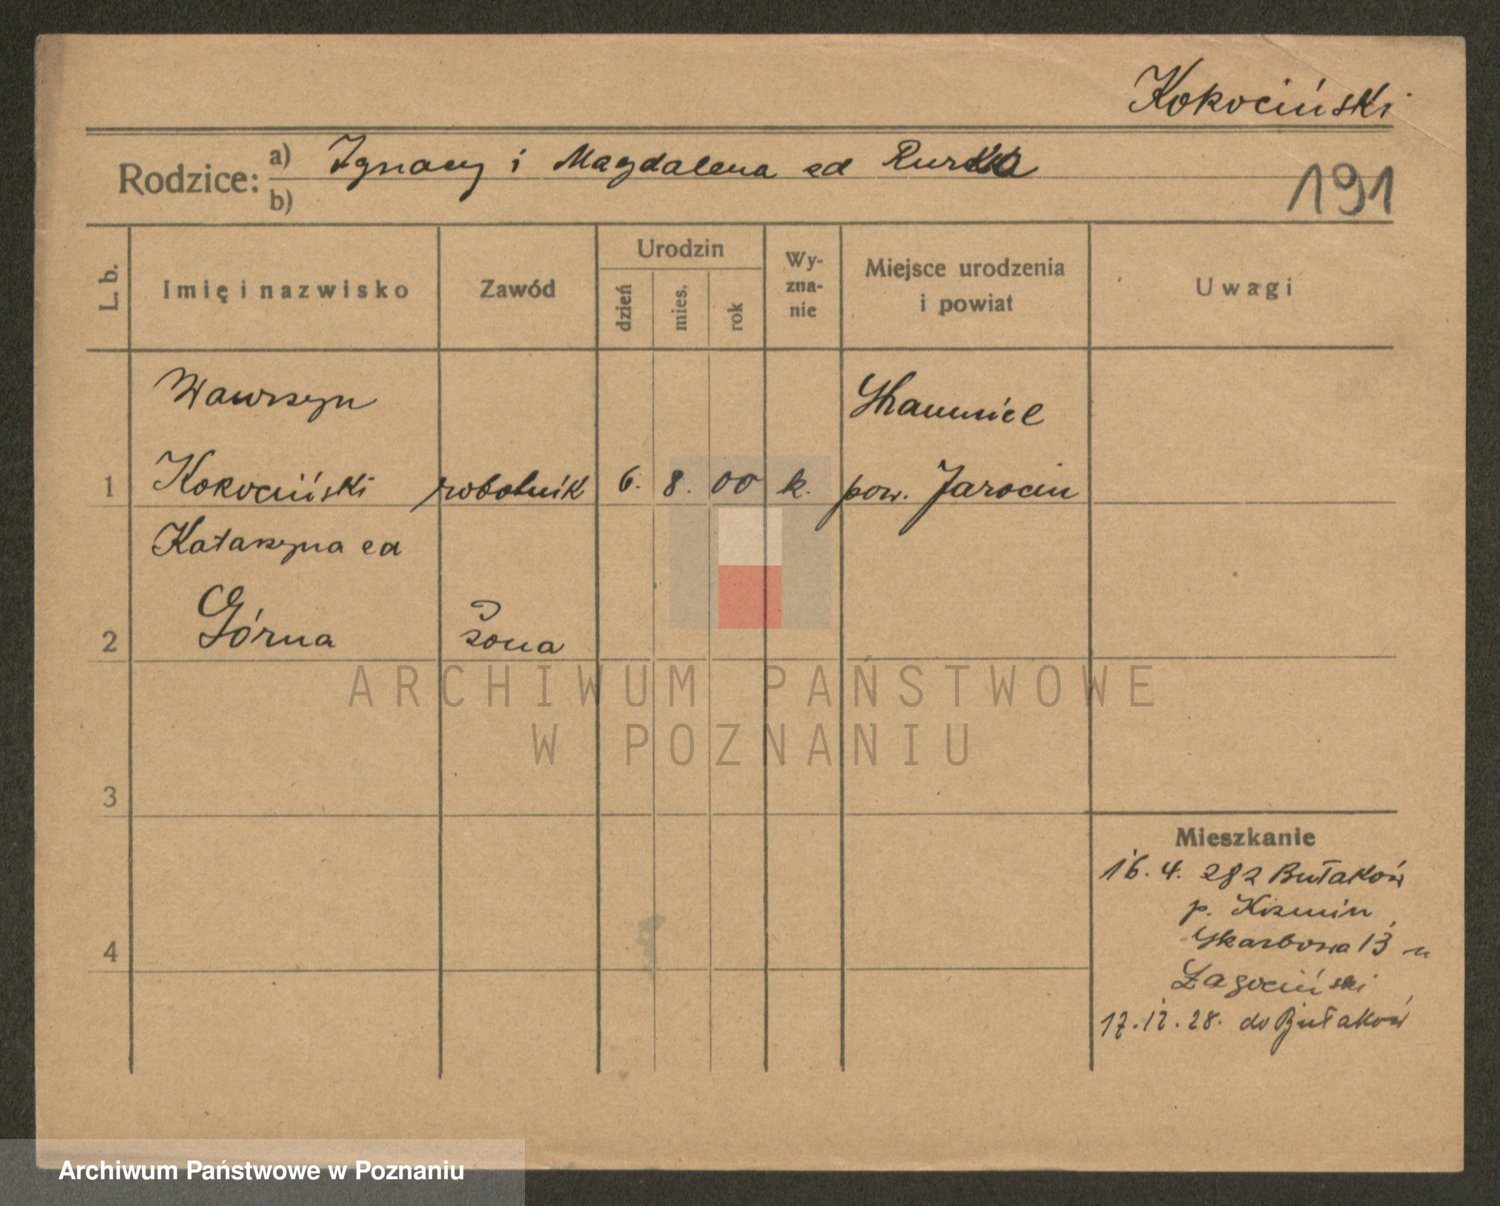 Kokociński
Rodzice: a) Ignacy i Magdalena
b)
191
L. b.
Imię i nazwisko
Zawód
Urodzin
dzień
mies.
rok
Wy-
zna-
nie
Miejsce urodzenia
i powiat
Uwagi
Wawrzyn
1 Kokociński robotnik 6. 8. 00 k. pow. Jarocin
Katarzyna
2 Górna żona
3
4
Mieszkanie
16. 4. 282 Bułaków
p.
Skarbowa 13
Zagociński
17. 12. 28. do Bułaków
ARCHIWUM PAŃSTWOWE
W POZNANIU
Archiwum Państwowe w Poznaniu